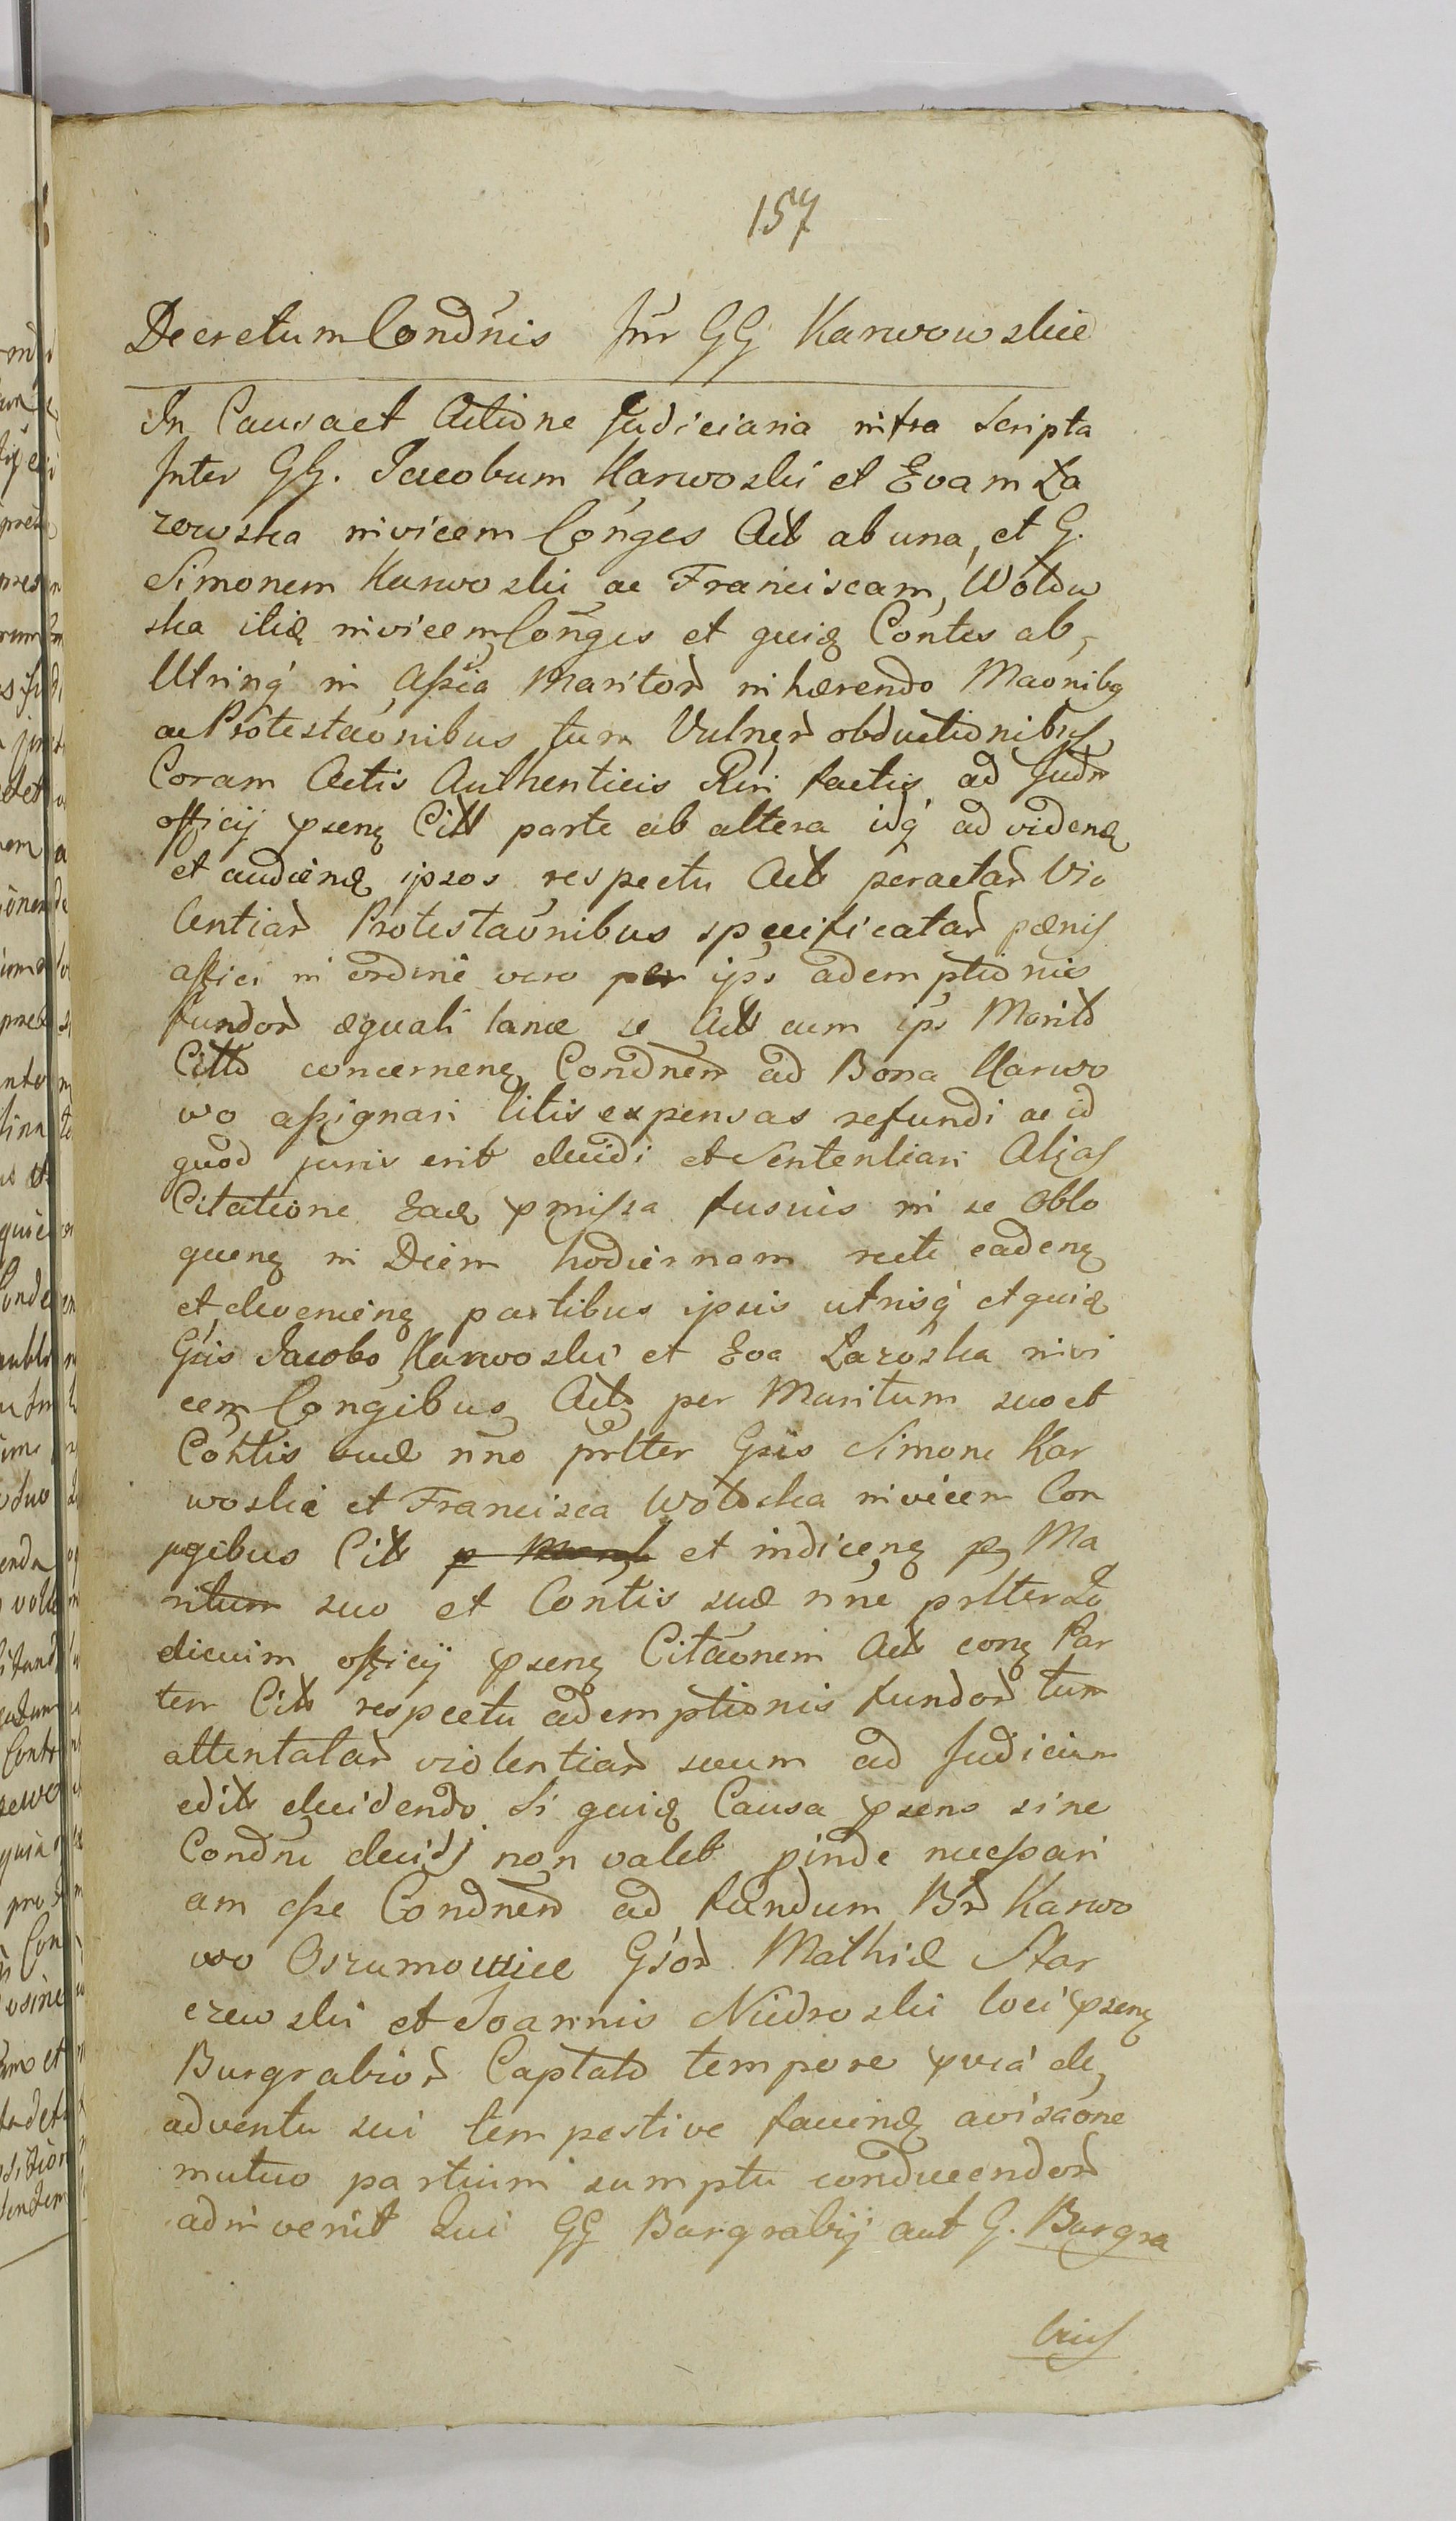 157
Decretum Condñis Inr GG Karwowskie
In Causa et Actione Judiciaria infra Scripta
Inter GG. Jacobum Karwoski et Evam Ła
zowska invicem Conges Act ab una, et G.
Simonem Karwoski ac Franciscam, Wołdw
ska itiq invicem Conges et quiq Contes ab
Utrinq in Assia Maritor inhærendo Maonibq
ac Protestaonibus tum Vulner obductionibus
Coram Actis Authenticis Rni factis ad Judm
officij psenq Citt parte ab altera idq ad videnq
et audienq ipsos respectu Act peractar Vio
lentiar Protestaonibus specificatar pænis
affici in ordine vero per ips ademptionis
fundor æquali lance se Act cum ips Marito
Citto concernenq Condnem ad Bona Karwo
wo assignari litis expensas refundi ac id
quod juris erit decidi et Sententiari Alias
Citatione Eaq pmissa fusius in se Oblo
quenq in Diem hodiernam recte cadenq
et devenienq partibus ipsis utrisq et quiq
Gsis Jacobo Karwoski et Eva Łazoska invi
cem Congibus Act per Maritum suo et
Contis suæ nno prlter Gsis Simone Kar
woski et Francisca Wołoska invicem Con
jugibus Citt et indicenq p Ma
ritum suo et Contis suæ nne prlter Ju
dicium officij psenq Citaonem Act conq Par
tem Citt respectu ademptionis fundor tum
attentatar violentiar secum ad Judicium
edit decidendo. Si quiq Causa psens sine
Condne decidi non valet pinde necessari
am esse Condnem ad fundum Br Karwo
wo Oszumowice Gsor Mathiæ Star
czewski et Joannis Niedroski loci psenq
Burgrabior Captato tempore pvia de
adventu sui tempestive faciendq avisaone
mutuo partium sumptu conducendor
adinvenit Qui GG Burgrabij aut G. Burgra
bius